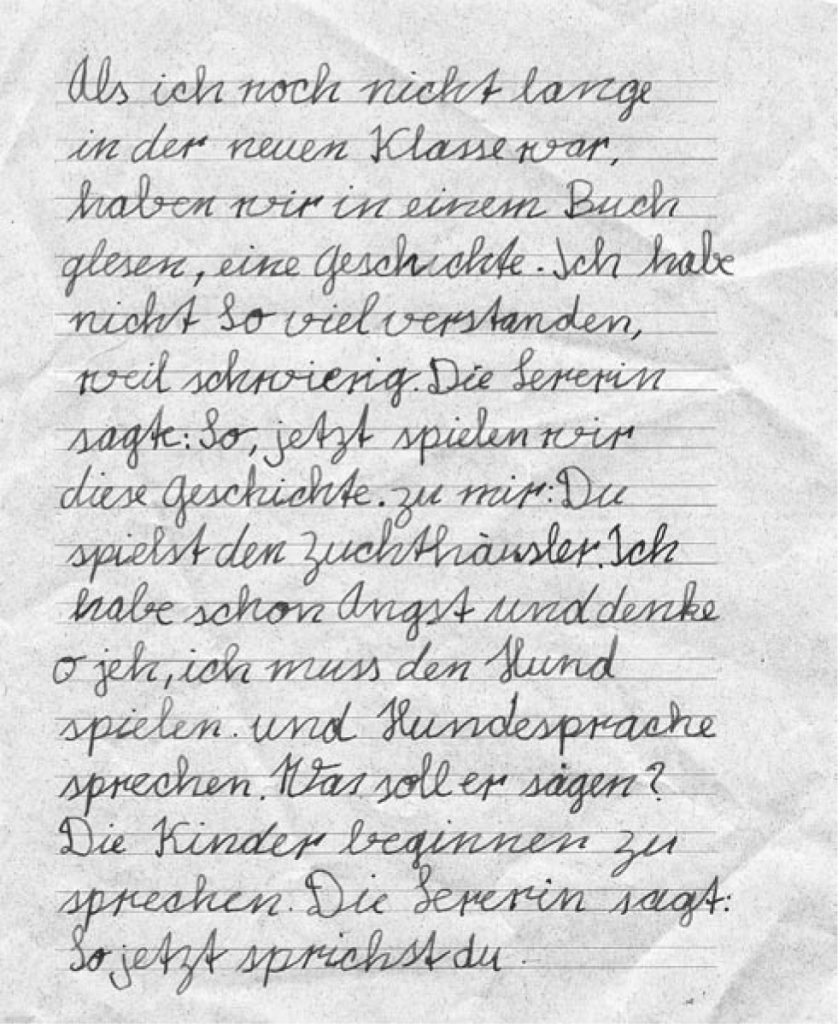 Als ich noch nicht lange
in der neuen Klasse war,
haben wir in einem Buch
glesen, eine Geschichte. Ich habe
nicht so viel verstanden,
weil schwierig. Die Lererin
sagte: So, jetzt spielen wir
diese Geschichte. zu mir: Du
spielst den Zuchthäusler. Ich
habe schon Angst und denke
o jeh, ich muss den Hund
spielen. und Hundesprache
sprechen. Was soll er sagen?
Die Kinder beginnen zu
sprechen. Die Lererin sagt:
So jetzt sprichst du